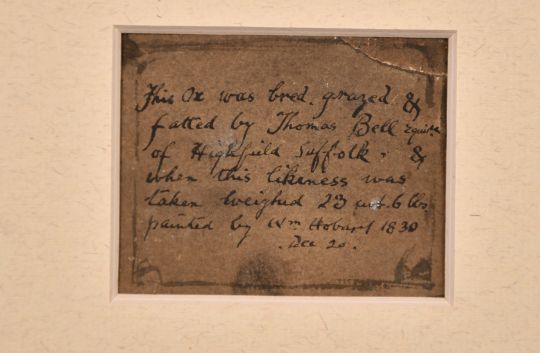 This Ox was bred. grazed &
fatted by Thomas Bell Esquire
of Highfield Suffolk. &
when this likeness was
taken weighed 23 cwt. 6 lbs.
painted by Wm Hobart 1830
. Dec 20.